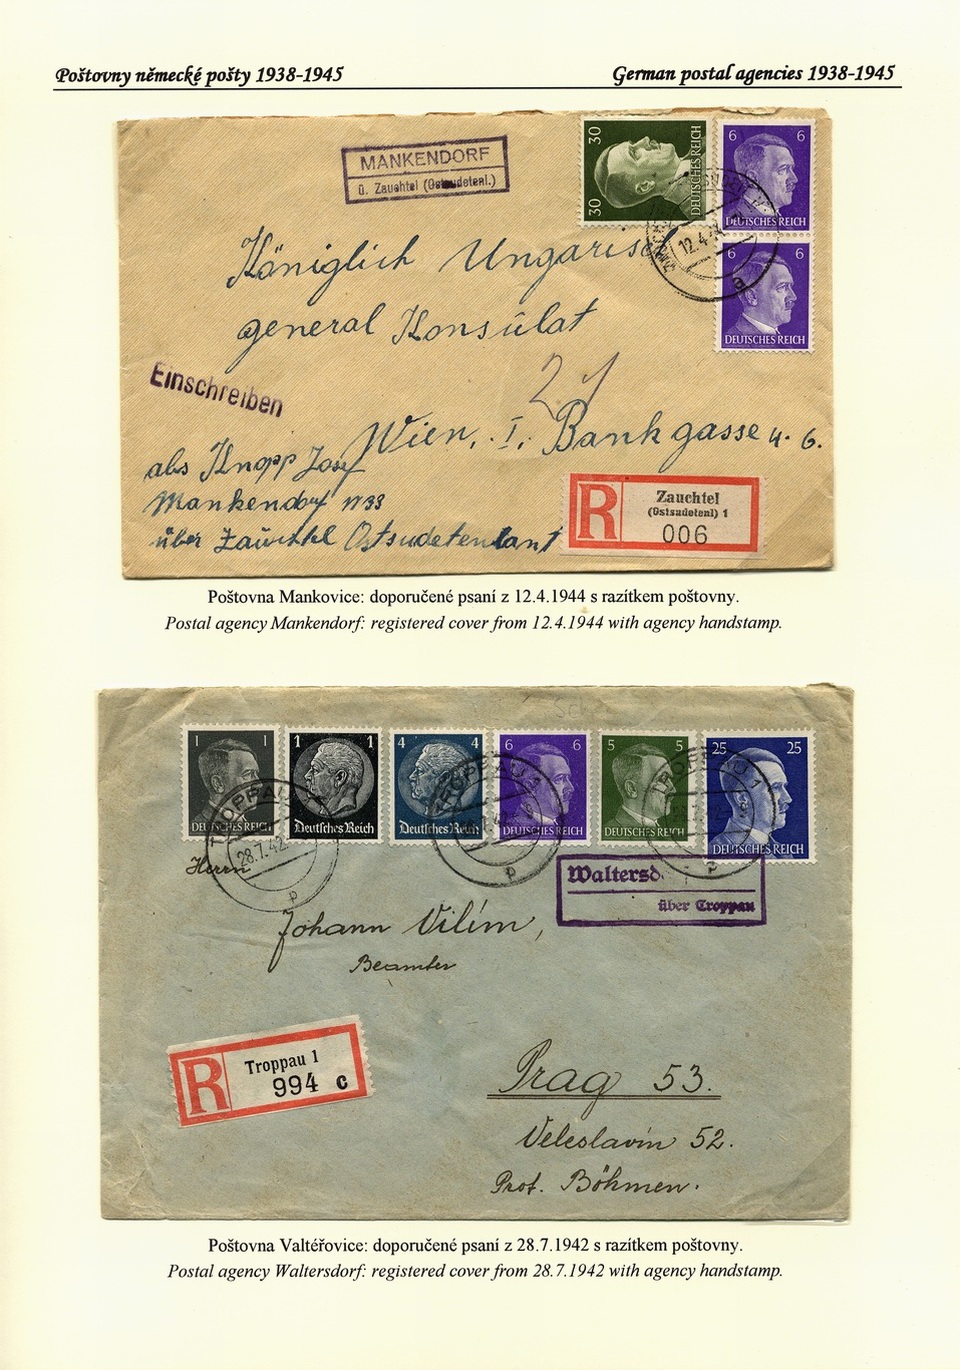 Poštovny německé pošty 1938-1945
German postal agencies 1938-1945
MANKENDORF
ü. Zauchtel (Ostsudetenl.)
30
30
DEUTSCHES REICH
6 6
DEUTSCHES REICH
6 6
DEUTSCHES REICH
12.4.
a
Königlich Ungarisch
general Konsulat
Einschreiben
Wien, I. Bankgasse 4-6.
abs Knopp Josef
Mankendorf N33
über Zauchtel Ostsudetenlant
R
Zauchtel
(Ostsudetenl) 1
006
Poštovna Mankovice: doporučené psaní z 12.4.1944 s razítkem poštovny.
Postal agency Mankendorf: registered cover from 12.4.1944 with agency handstamp.
1 1
DEUTSCHES REICH
1 1
Deutsches Reich
4 4
Deutsches Reich
6 6
DEUTSCHES REICH
5 5
DEUTSCHES REICH
25 25
DEUTSCHES REICH
TROPPAU
28.7.42
p
TROPPAU 1
p
TROPPAU 1
p
Waltersd
über Troppau
Herrn
Johann Vilím,
Beamter
R
Troppau 1
994 c
Prag 53.
Veleslavín 52.
Prot. Böhmen.
Poštovna Valtéřovice: doporučené psaní z 28.7.1942 s razítkem poštovny.
Postal agency Waltersdorf: registered cover from 28.7.1942 with agency handstamp.